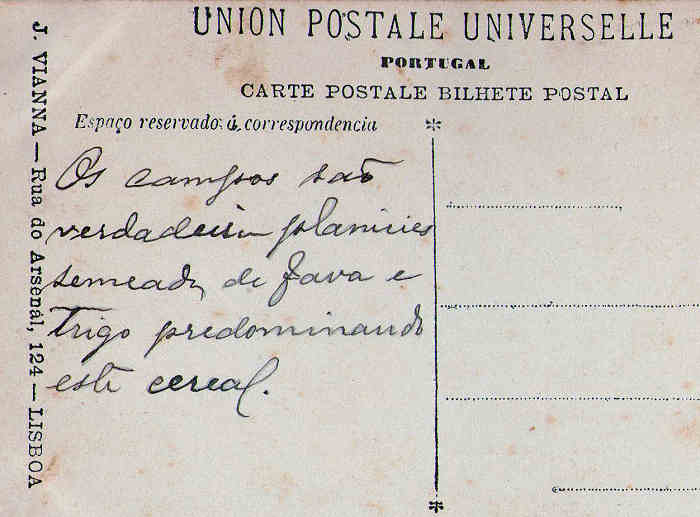 UNION POSTALE UNIVERSELLE
PORTUGAL
CARTE POSTALE BILHETE POSTAL
Espaço reservado á correspondencia
Os campos são
verdadeiras planicies
semeadas de fava e
trigo predominando
este cereal.
J. VIANNA — Rua do Arsenal, 124 — LISBOA